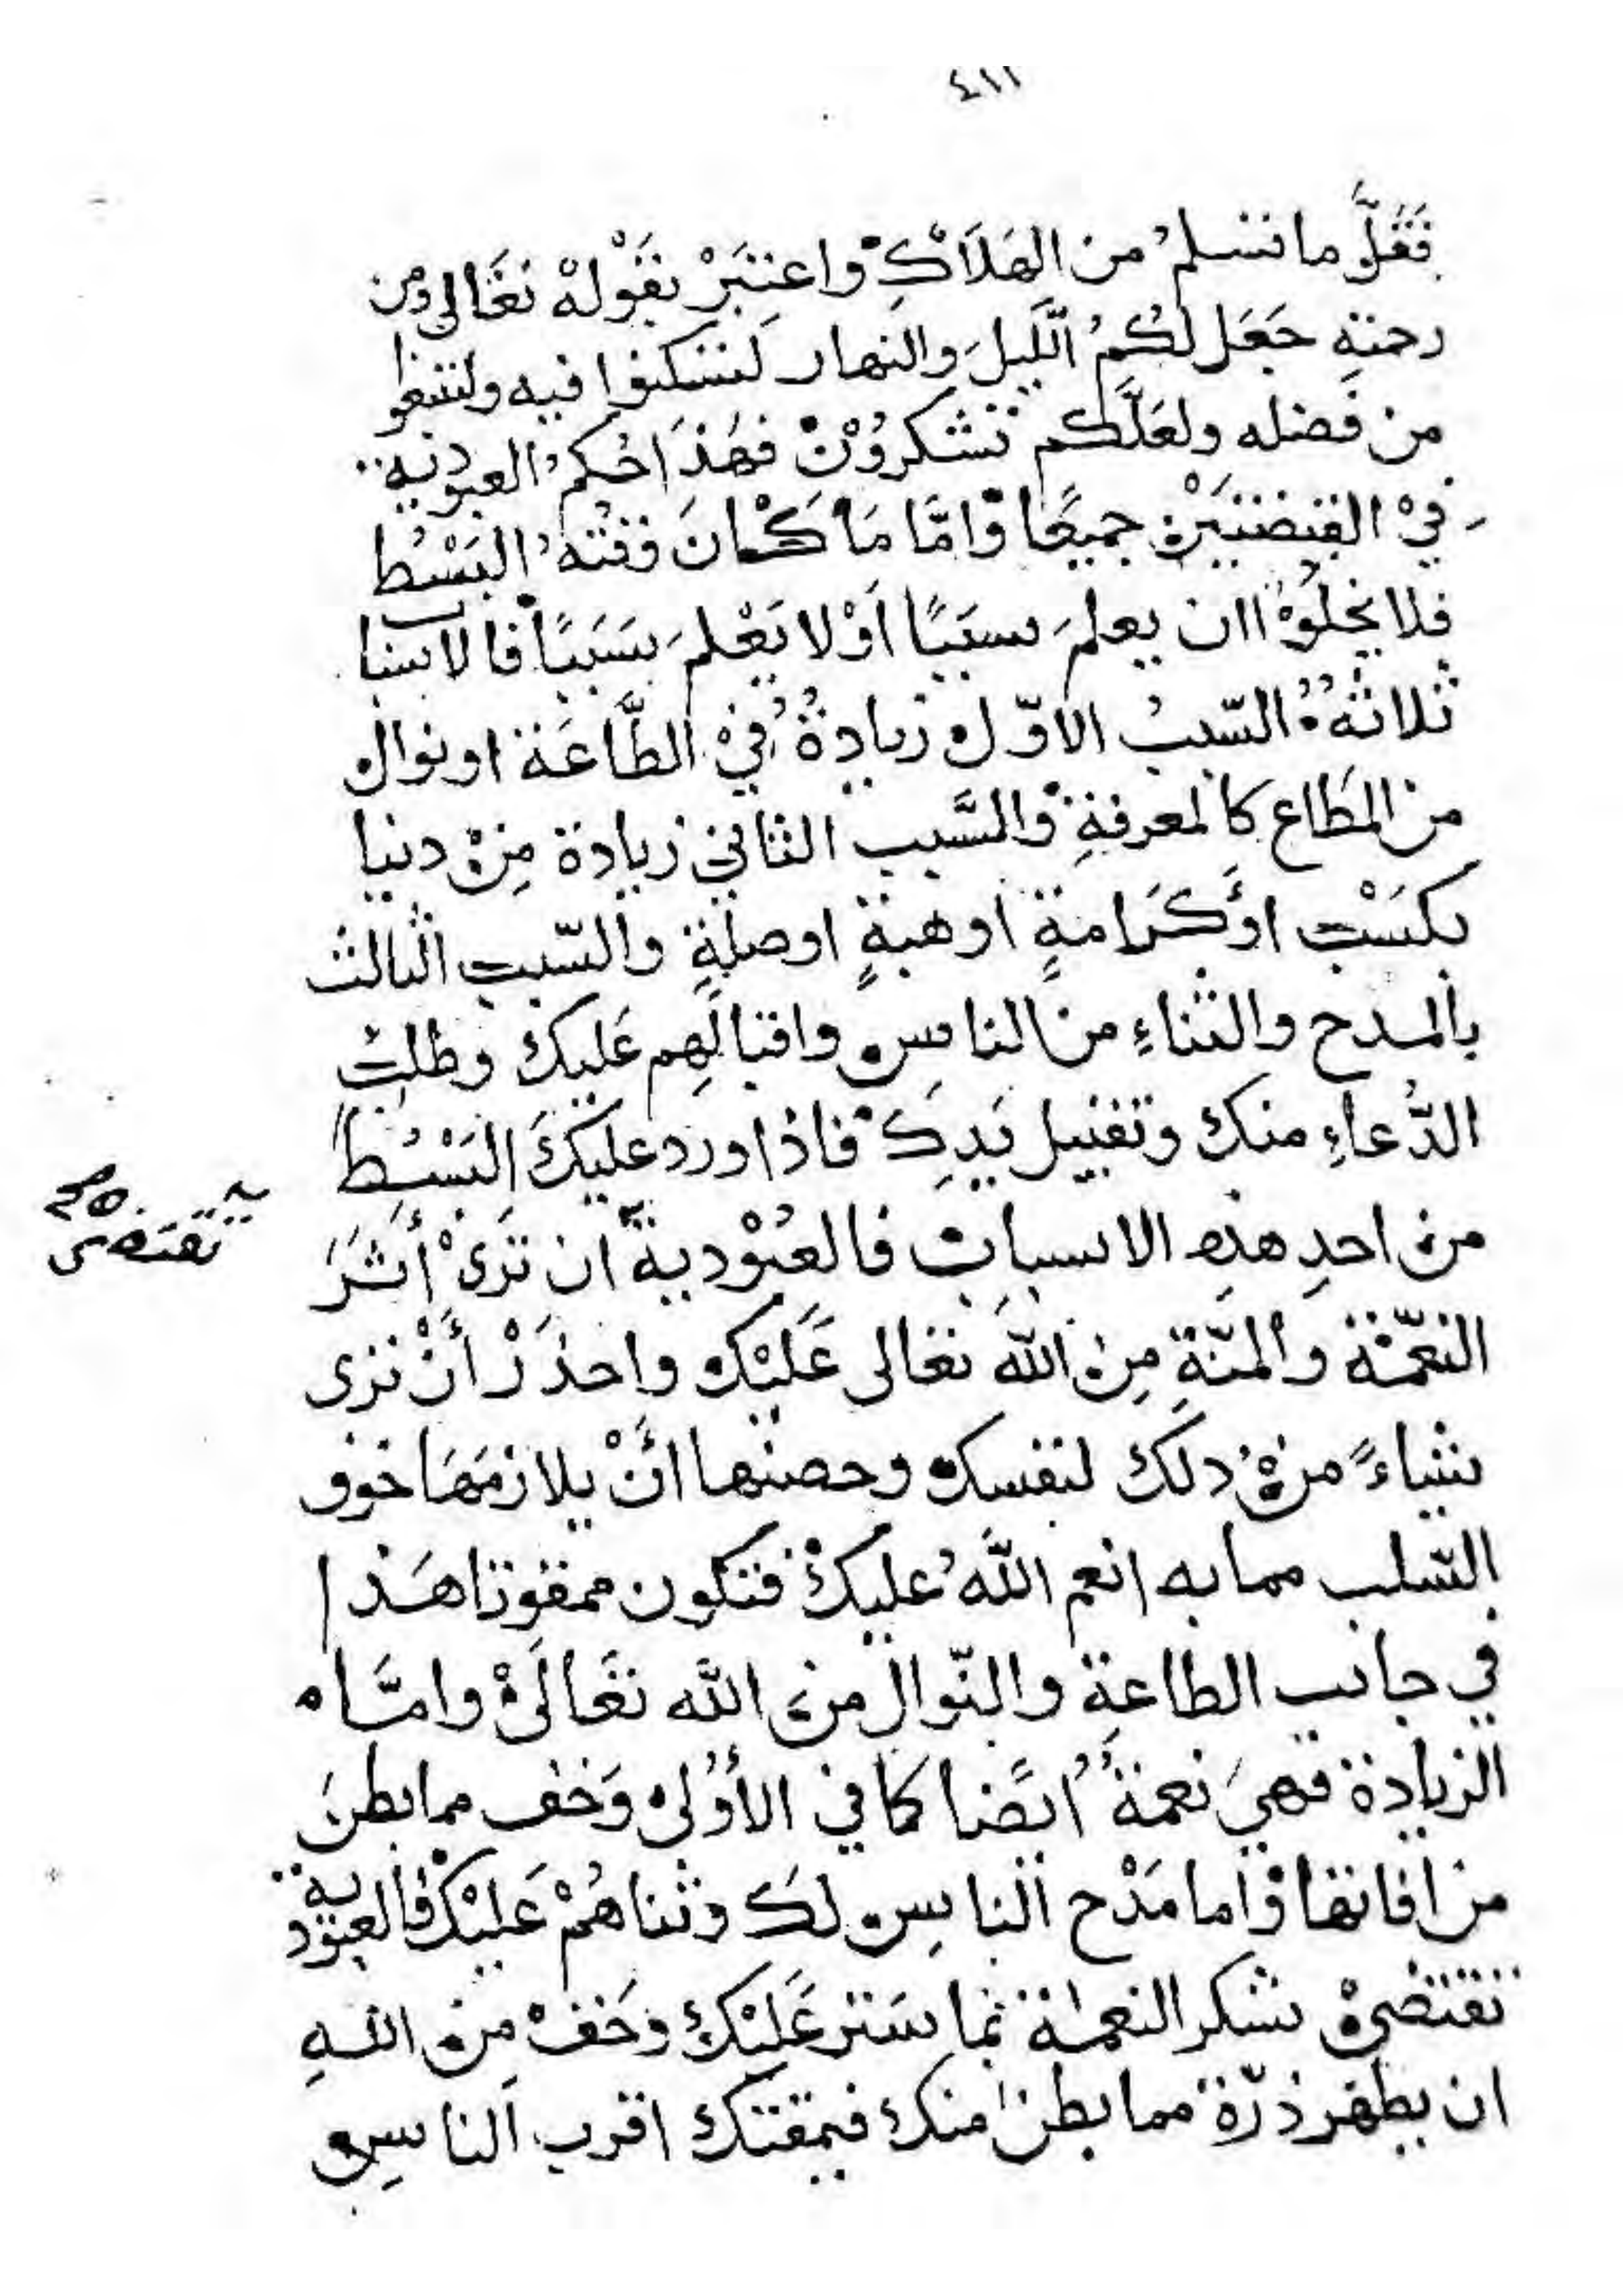 ٤١١
فَقَلَّ ما تسلمُ من الهَلَاكِ واعتَبَرْ بقَوْلهْ تعَالى ومن
رحمته جَعَل لكُمُ اللَّيلَ والنهار لتسْكنوا فيه ولتبتغوا
من فَضله ولعَلَّكم تشْكروُنْ فهٰذَا حُكمُ العبودية
فيْ القبضتَيْن جميعًا وَامَّا مَا كَانَ وَقتهُ البَسْطُ
فلا يخلوْ اان يعلمَ سببًا اَوْ لا يَعْلمَ سَبَبًا فالاسباب
ثلاثة السّببُ الاوّل زيادةُ فيْ الطَّاعَة او نوال
من المطَاع كالمعرفةِ وَالسَّبب الثاني زيادة مِنْ دنيا
بكسْب اوْ كَرَامةٍ او هبةٍ او صلةٍ والسّبب الثالث
بالمدح والثناءِ من الناس واقبالهِم عَليك وطلب
الدُّعاءِ منك وتقبيل يَدِكَ فاذا ورد عليكَ البَسْطُ
من احدِ هذِه الاسباب فالعبُوْدية ان تَرَىْ أثَرَ
تقتضى
النعْمَة والمنّةِ مِن اللّٰه تعَالى عَليْك واحذَرْ أَنْ ترى
شياءً منْ ذلكَ لنفسك وحصنها انْ يلازمَهَا خوف
السّلب مما به انعم اللّٰهُ عليكْ فتكون ممقوتا هَذا
في جانب الطاعةِ والنّوال من اللّٰه تعَالَىْ وامَّا
الزيادة فهيَ نعمةٌ ايضًا كما في الأُوْلى وَخف مما بطنَ
من افاتها وَاما مَدْح الناسِ لكَ وثناهُمْ عَليْك فالعبودية
تقتضيْ شكر النعمة بما سَتر عَليْك وخَفْ مِن اللّٰهِ
ان يظهر ذرّة مما بطن منك فيمقتك اقرب الناسِ